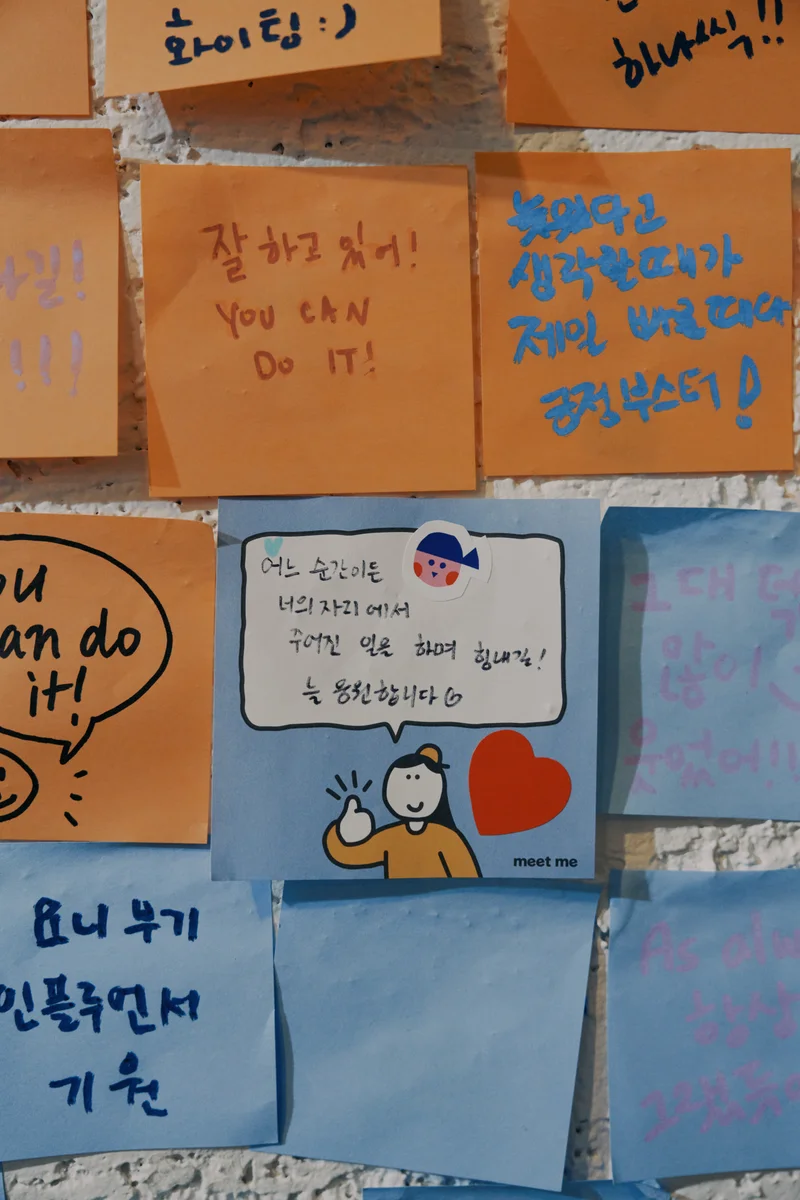 화이팅 :)
하나씩!!
길!
!!!
잘 하고 있어!
YOU CAN
DO IT!
늦었다고
생각할때가
제일 빠를때다
긍정부스터!
ou
an do
it!
어느 순간이든
너의 자리에서
주어진 일을 하며 힘내길!
늘 응원합니다
meet me
그대
많이
웃었어!!
요니 부기
인플루언서
기원
As
항상